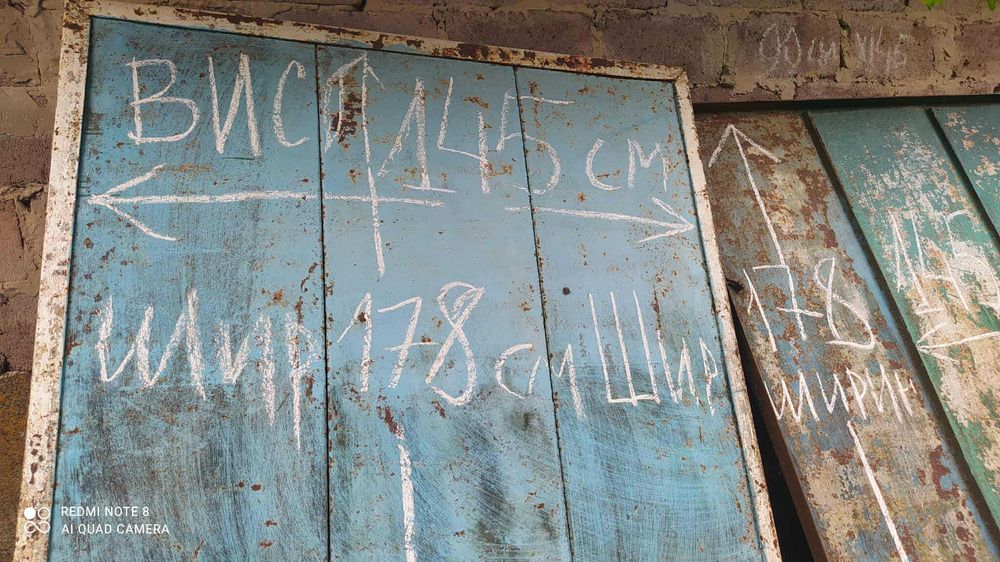 90 см 145
ВИСА 145 см
шир 178 см Шир
178
145
ширин
REDMI NOTE 8
AI QUAD CAMERA